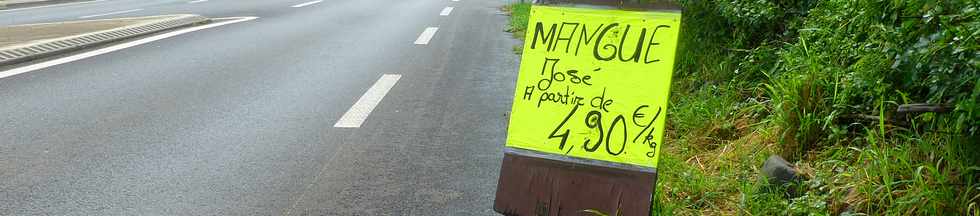 MANGUE
José
A partir de
4,90 €/kg